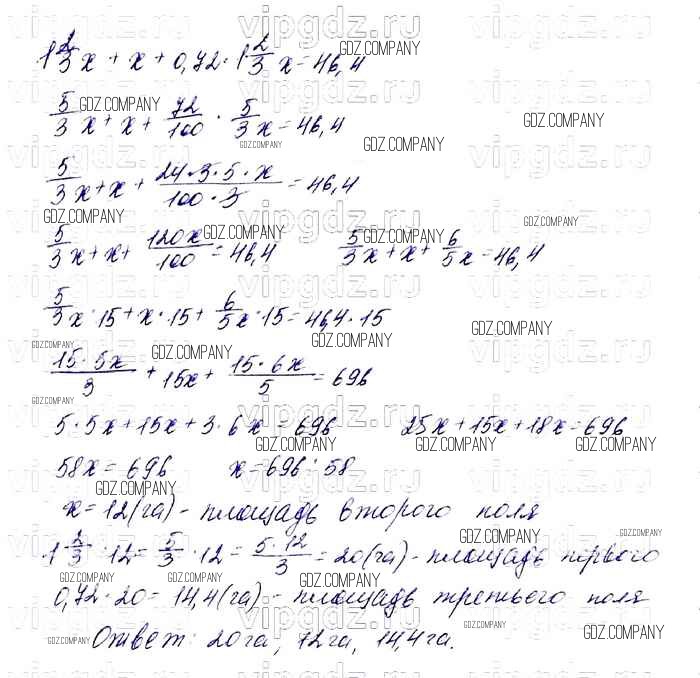 1 2/3 x + x + 0,72 · 1 2/3 x = 46,4
5/3 x + x + 72/100 · 5/3 x = 46,4
5/3 x + x + (24 · 3 · 5 · x)/(100 · 3) = 46,4
5/3 x + x + 120x/100 = 46,4    5/3 x + x + 6/5 x = 46,4
5/3 x · 15 + x · 15 + 6/5 x · 15 = 46,4 · 15
(15 · 5x)/3 + 15x + (15 · 6x)/5 = 696
5 · 5x + 15x + 3 · 6x = 696    25x + 15x + 18x = 696
58x = 696    x = 696 : 58
x = 12 (га) - площадь второго поля
1 2/3 · 12 = 5/3 · 12 = (5 · 12)/3 = 20 (га) - площадь первого
0,72 · 20 = 14,4 (га) - площадь третьего поля
Ответ: 20 га, 12 га, 14,4 га.
vipgdz.ru
GDZ.COMPANY